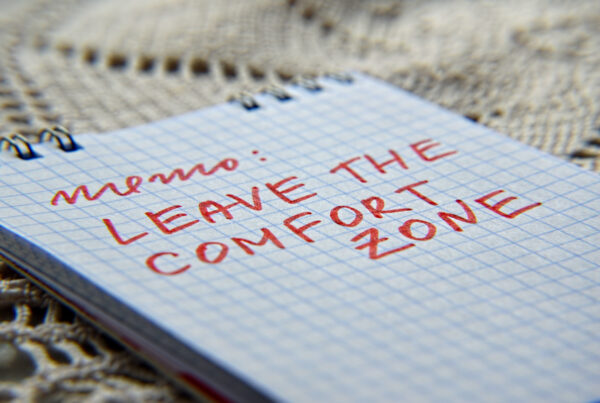 memo:
LEAVE THE
COMFORT
ZONE